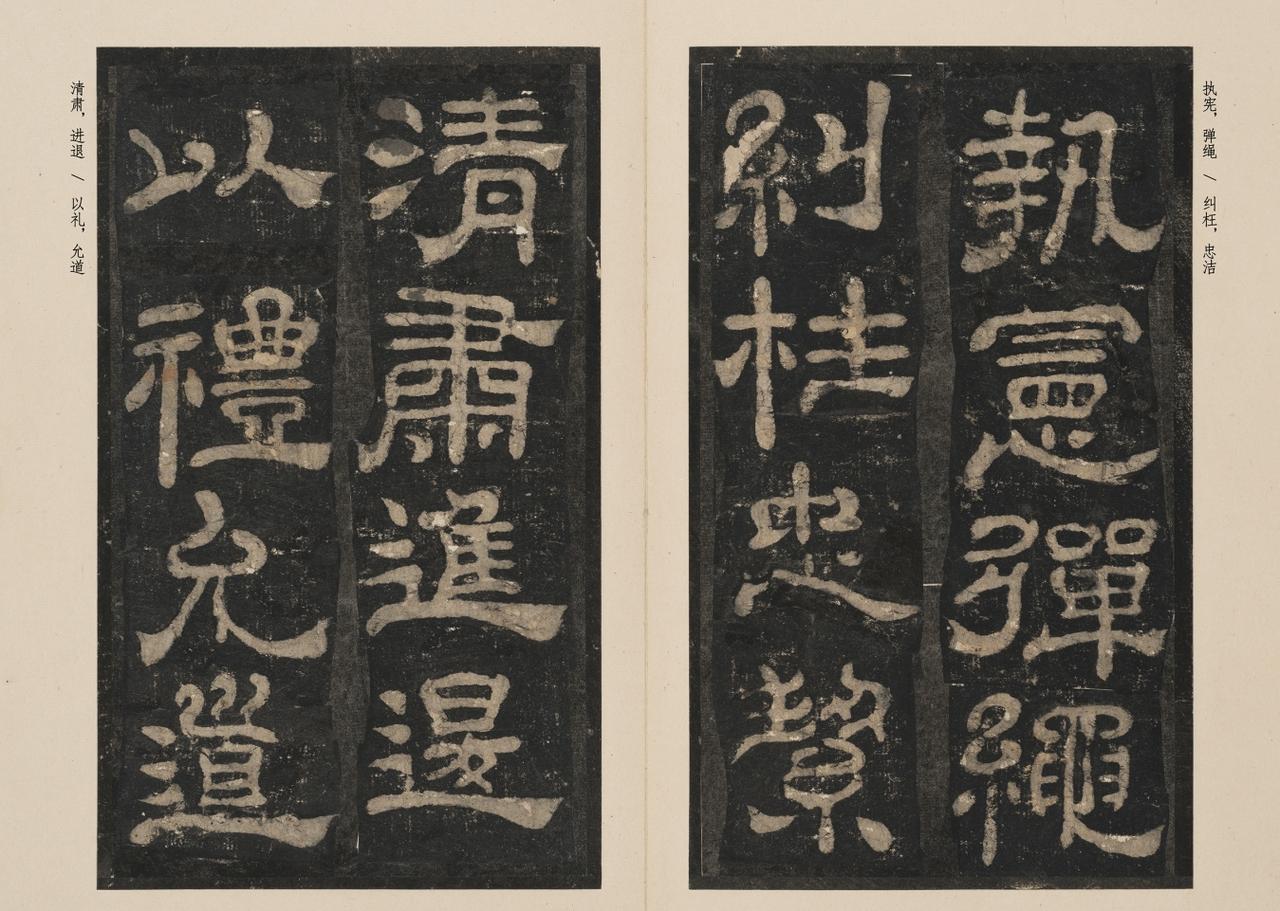 执宪，弹绳 / 纠枉，忠洁
執憲彈繩
糾枉忠絜
清肅進退
以禮允道
清肃，进退 / 以礼，允道